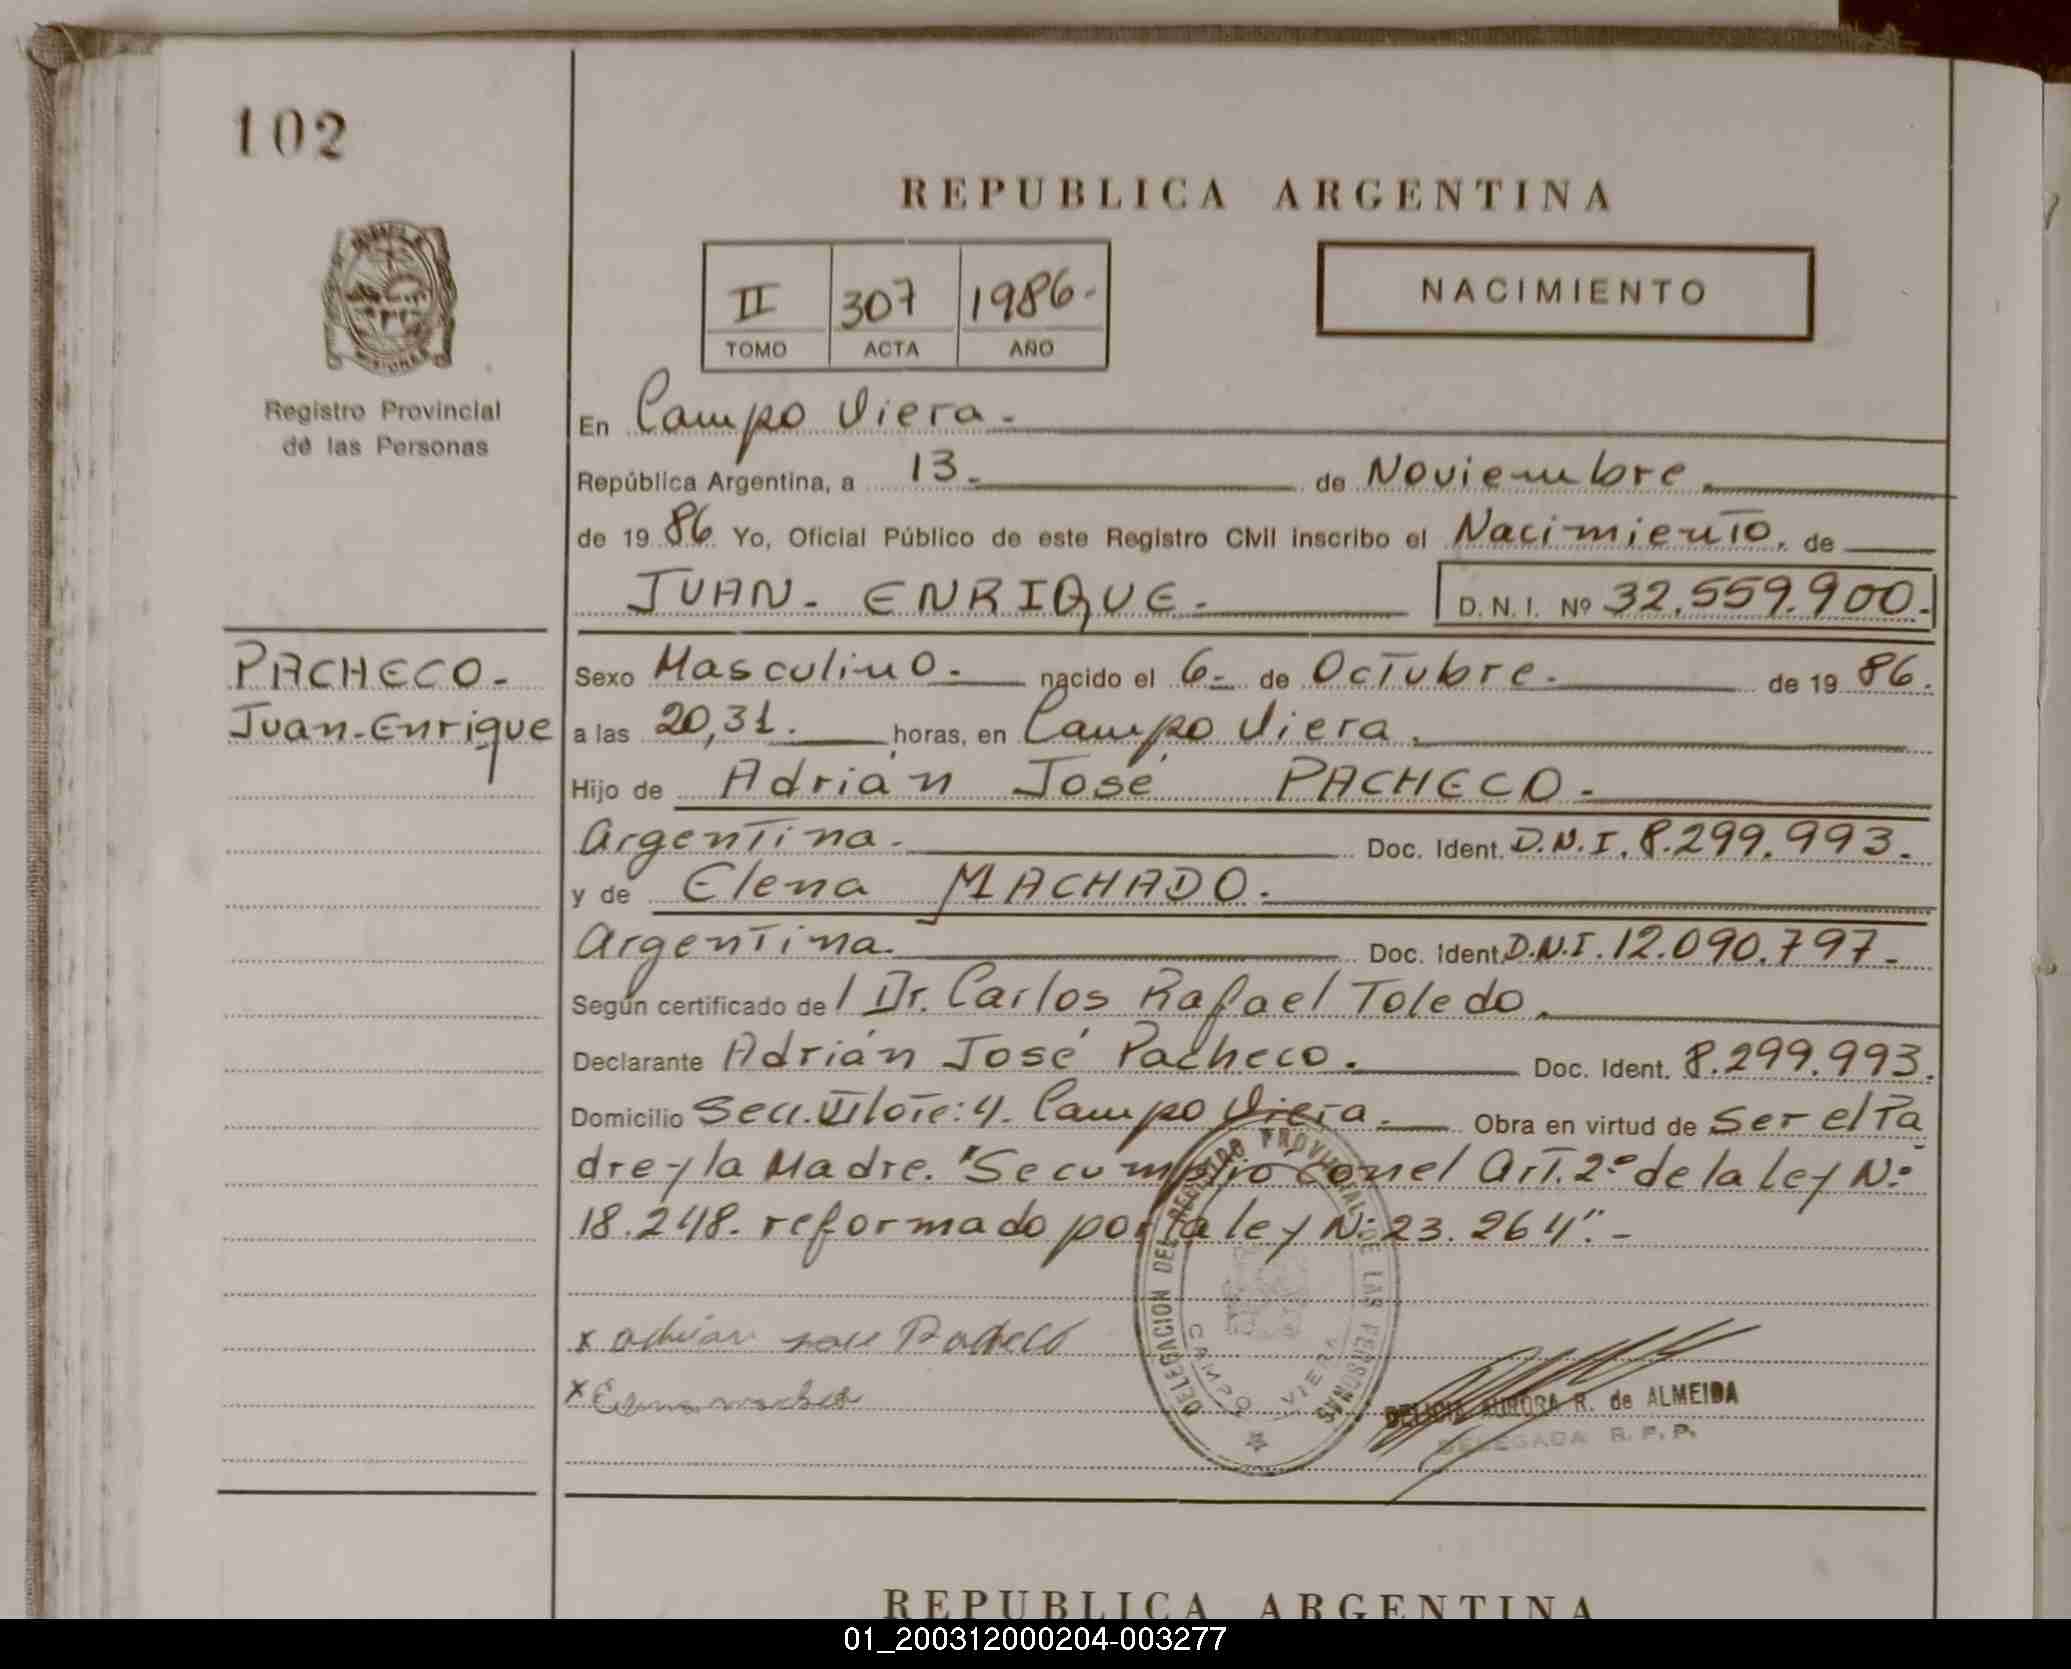 102
REPUBLICA ARGENTINA
II 307 1986.-
TOMO ACTA AÑO
NACIMIENTO
MISIONES
Registro Provincial
de las Personas
En Campo Viera.-
República Argentina, a 13.- de Noviembre.
de 19 86. Yo, Oficial Público de este Registro Civil inscribo el Nacimiento. de
JUAN- ENRIQUE.- D. N. I. Nº 32.559.900.-
PACHECO.-
Juan-Enrique
Sexo Masculino.- nacido el 6.- de Octubre.- de 19 86.
a las 20,31. horas, en Campo Viera.
Hijo de Adrián José PACHECO.-
Argentina.- Doc. Ident. D.N.I. 8.299.993.-
y de Elena MACHADO.-
Argentina. Doc. Ident. D.N.I. 12.090.797.-
Según certificado del Dr. Carlos Rafael Toledo.
Declarante Adrián José Pacheco. Doc. Ident. 8.299.993.
Domicilio Secc. VI lote: 4. Campo Viera.- Obra en virtud de Ser el Pa
dre y la Madre. "Se cumplió con el Art. 2º de la ley Nº
18.248. reformado por la ley Nº 23.264".-
x Adrian Jose Pacheco
x
DELEGACION DEL REGISTRO PROVINCIAL DE LAS PERSONAS
CAMPO VIERA
DELICIA AURORA R. de ALMEIDA
DELEGADA R. P. P.
REPUBLICA ARGENTINA
01_200312000204-003277